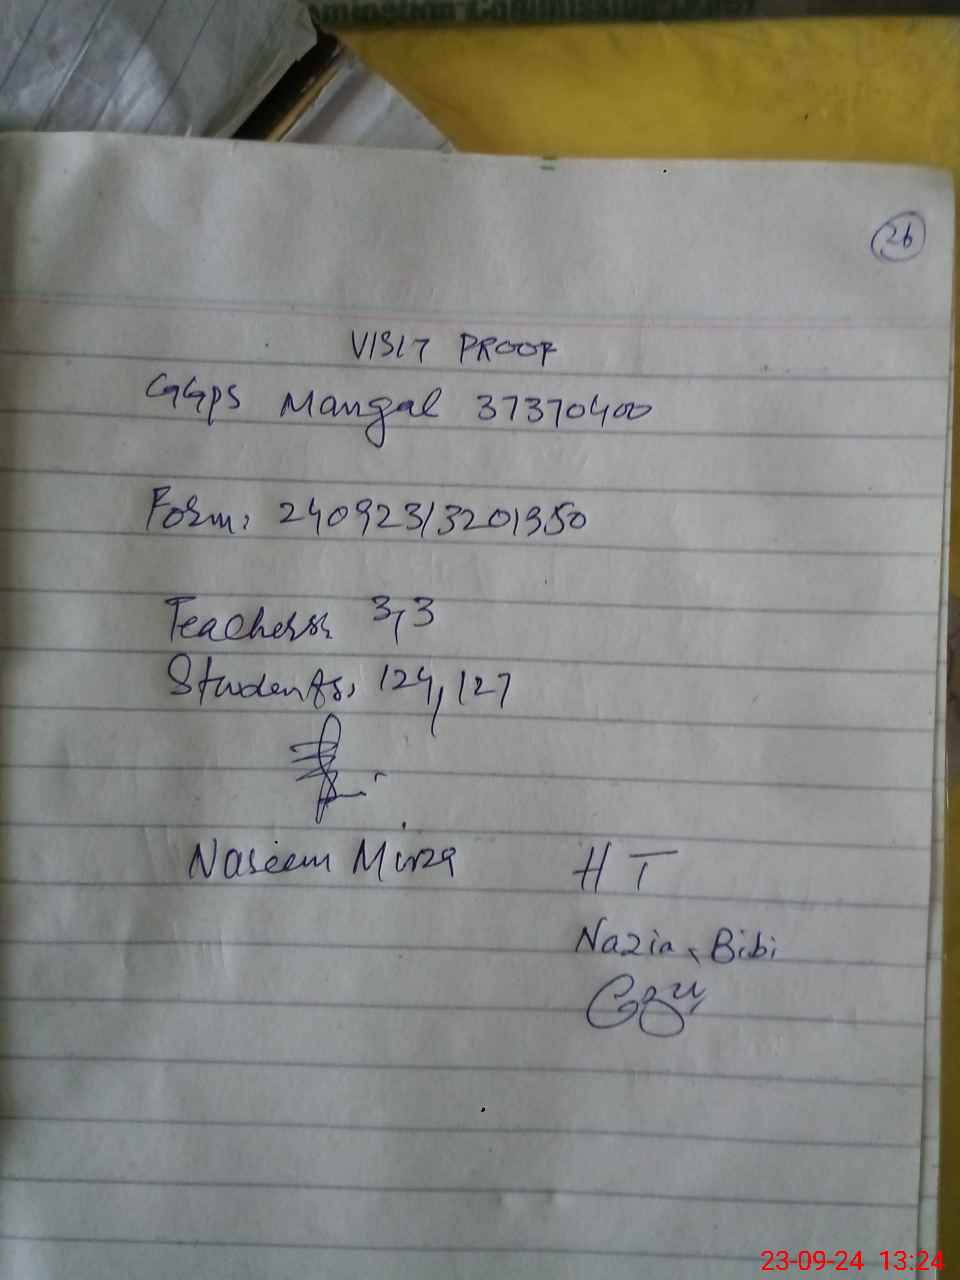 26
VISIT PROOF
GGPS Mangal 37370400
Form: 240923/3201350
Teachers: 3, 3
Students: 124, 127
Naseem Mirza
HT
Nazia Bibi
23-09-24 13:24